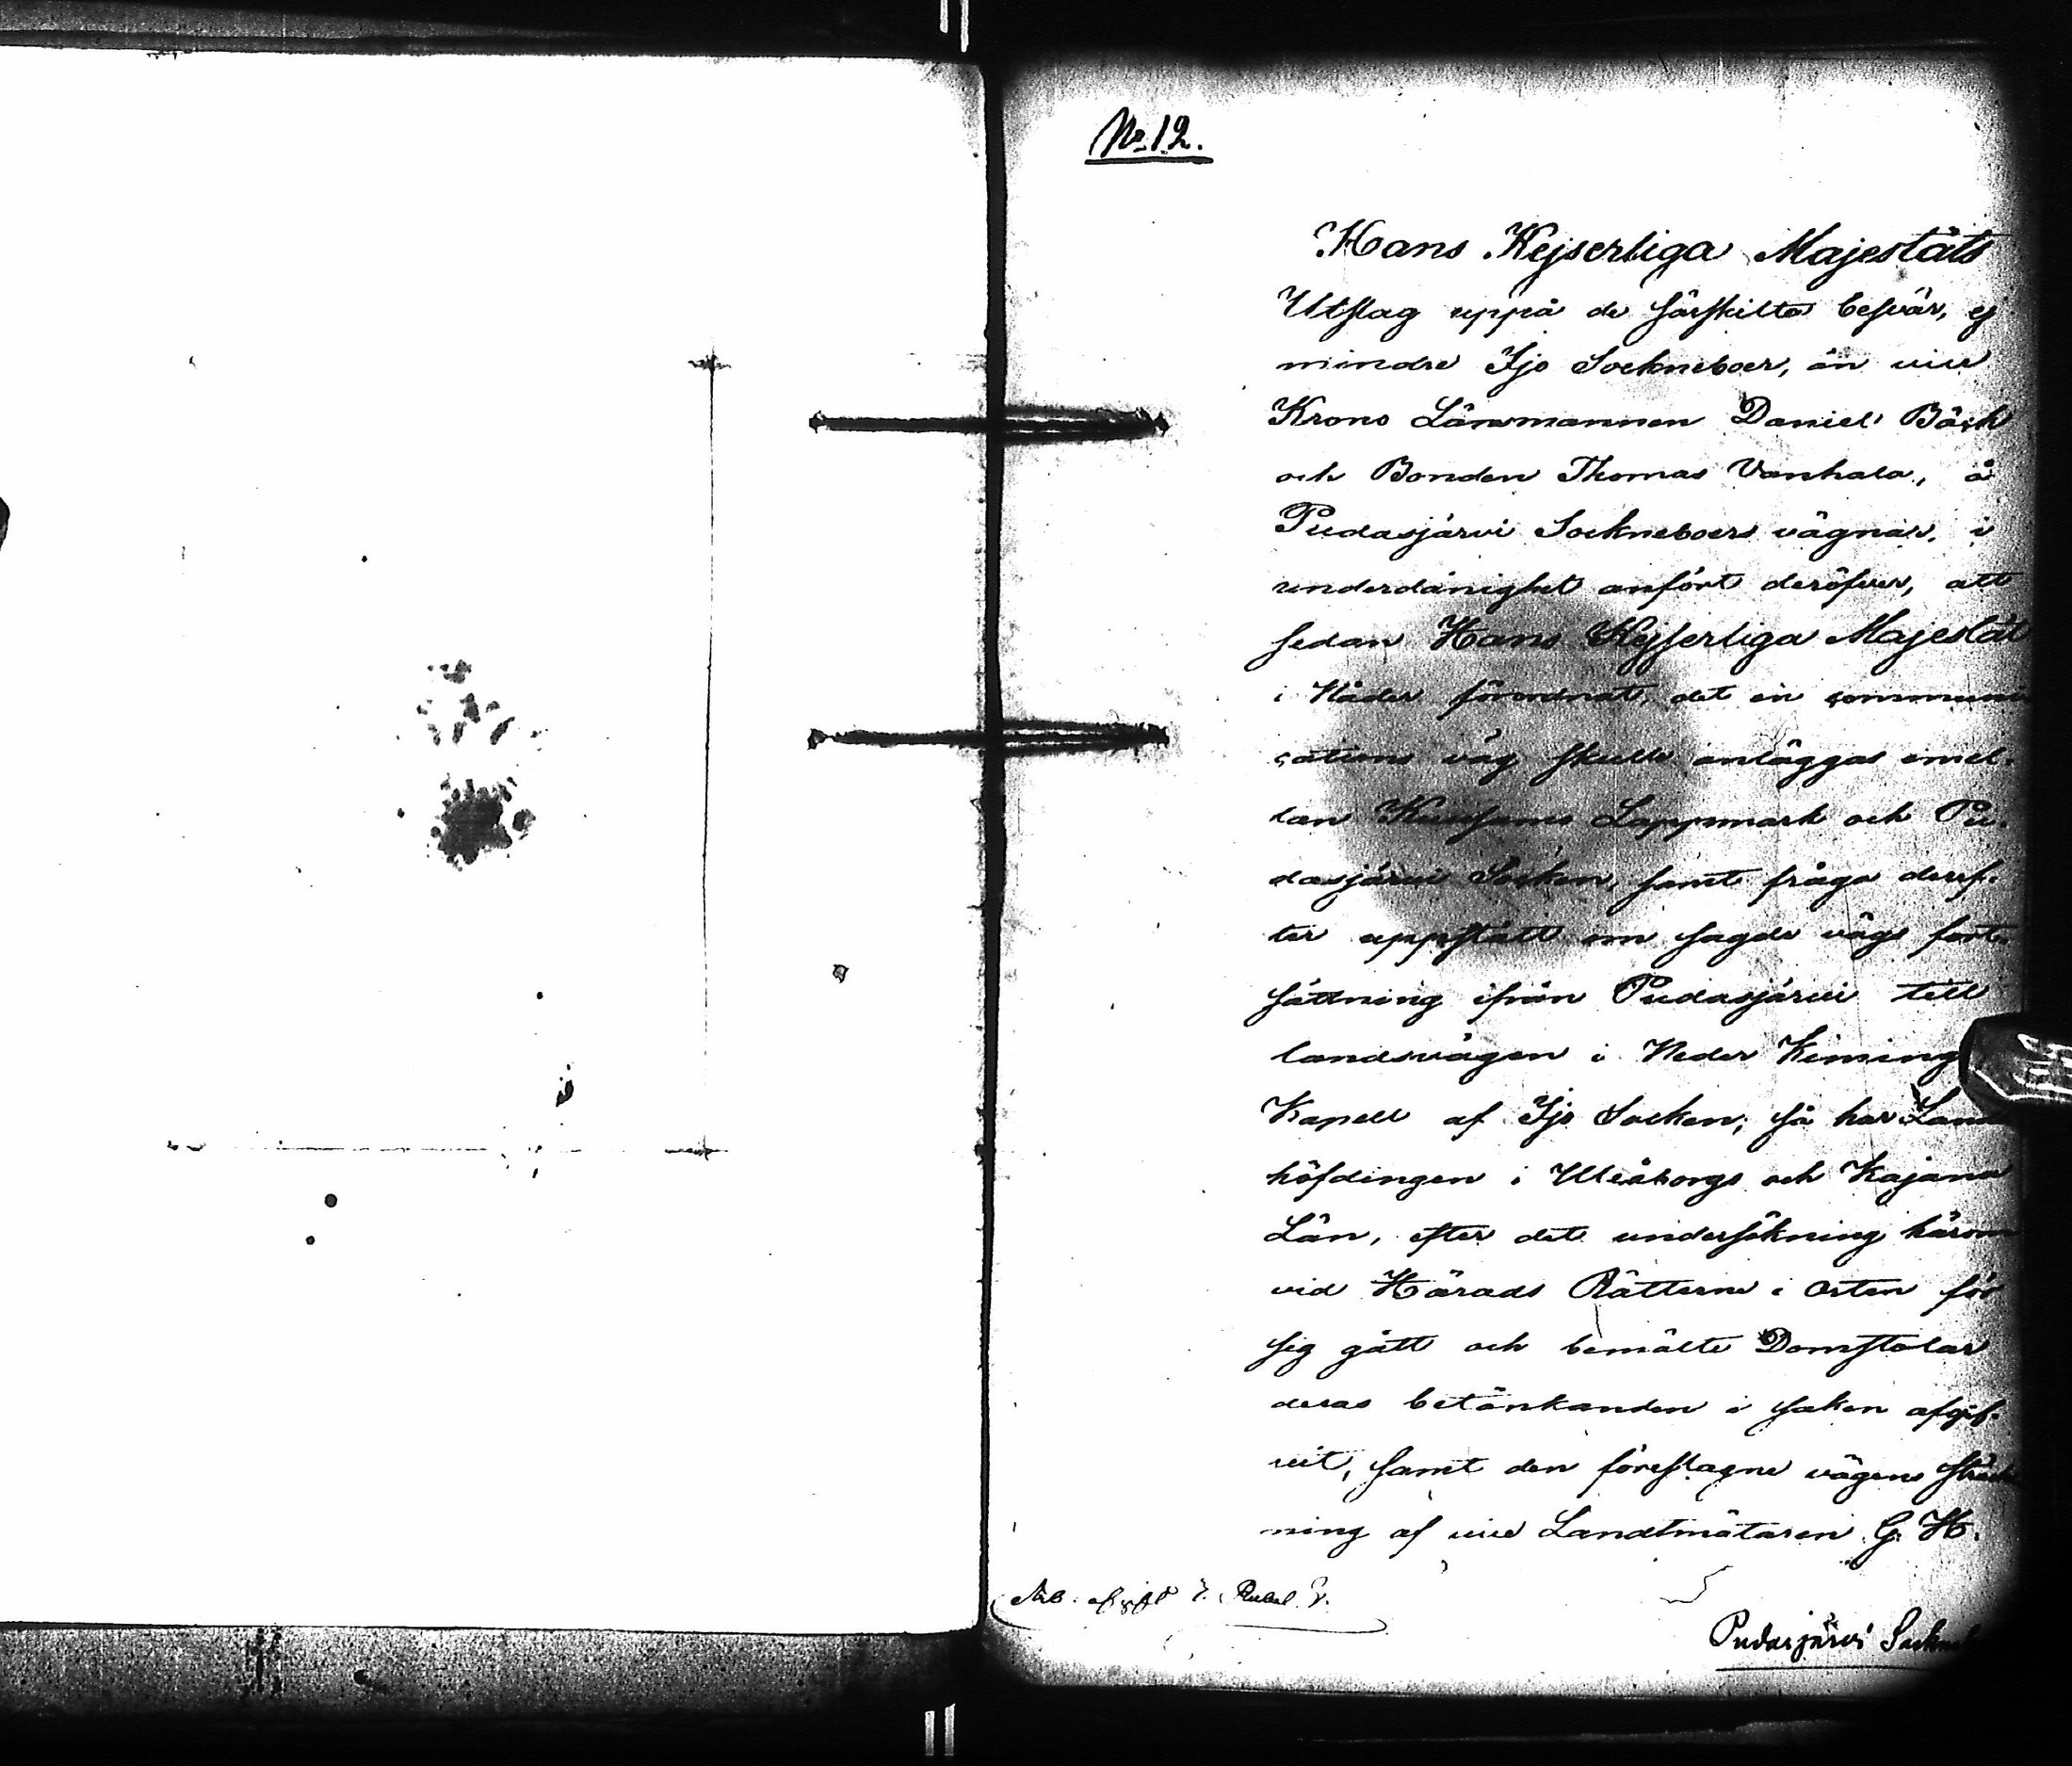 No 12.
Hans Kejserliga Majestäts
Utslag uppå de särskilta besvär, ej
mindre Ijo Sockneboer, än vice
Krono Länsmannen Daniel Bäck
och Bonden Thomas Vanhala, å
Pudasjärvi Sockneboers vägnar, i
underdånighet anfört deröfver, att
sedan Hans Kejserliga Majestät
i Nåder förordnat, det en communi
cations väg skulle anläggas emel-
lan Kuusamo Lappmark och Pu-
dasjärvi Socken, samt fråga deref-
ter uppstått om sagde vägs fort-
sättning ifrån Pudasjärvi till
landsvägen i Neder Kiming
Kapell af Ijo Socken; så har Lands
höfdingen i Uleåborgs och Kajana
Län, efter det undersökning härom
vid Härads Rätterne i orten för
sig gått och bemälte Domstolar
deras betänkanden i saken afgif-
vit, samt den föreslagne vägens sträck
ning af vice Landtmätaren G. H.
Pudasjärvi Sockneb